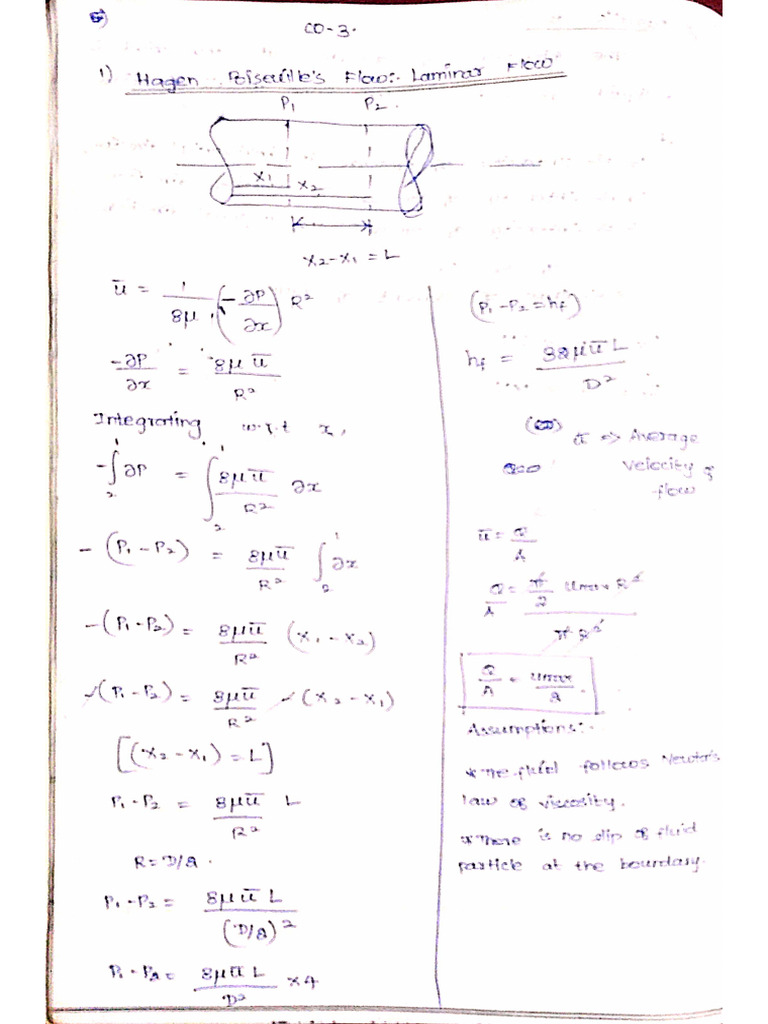 CO-3.
1) Hagen Poiseuille's Flow:- Laminar Flow
P₁ P₂.
x₁ x₂
x₂-x₁ = L
ū = 1/8μ (-∂P/∂x) R²
-∂P/∂x = 8μū/R²
Integrating w.r.t x,
-∫₂¹ ∂P = ∫₂¹ 8μū/R² ∂x
-(P₁-P₂) = 8μū/R² ∫₂¹ ∂x
-(P₁-P₂) = 8μū/R² (x₁-x₂)
-(P₁-P₂) = 8μū/R² -(x₂-x₁)
[(x₂-x₁) = L]
P₁-P₂ = 8μū/R² L
R = D/2.
P₁-P₂ = 8μūL/(D/2)²
P₁-P₂ = 8μūL/D² ×4
(P₁-P₂ = hf)
hf = 32μūL/D²
ū => Average
velocity of
flow
ū = Q/A
Q/A = π/2 Umax R²/πR²
Q/A = Umax/2.
Assumptions:-
* The fluid follows Newton's
law of viscosity.
* There is no slip of fluid
particle at the boundary.